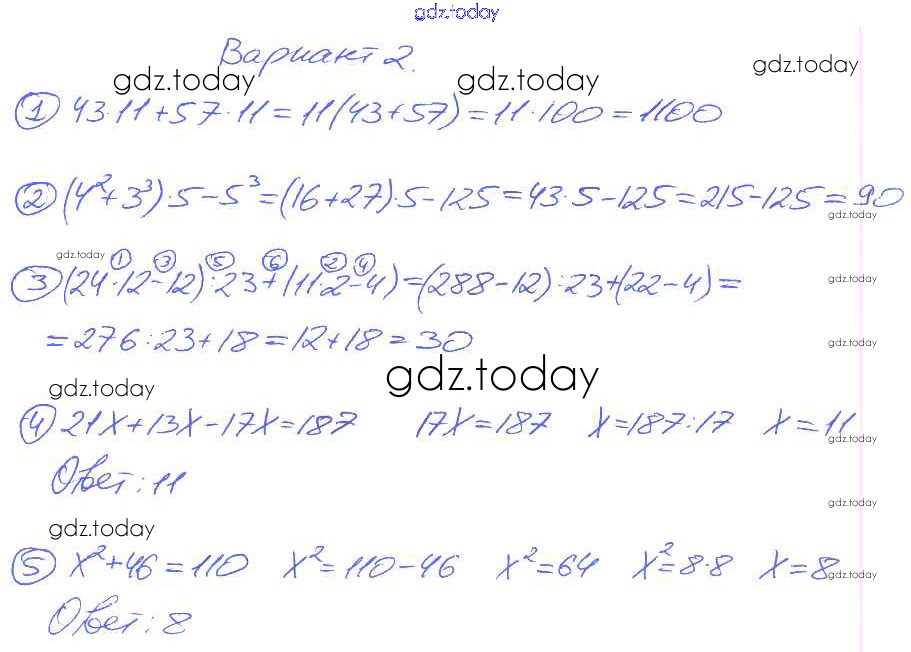 gdz.today
Вариант 2.
gdz.today gdz.today gdz.today
① 43·11+57·11=11(43+57)=11·100=1100
② (4²+3³)·5-5³=(16+27)·5-125=43·5-125=215-125=90
gdz.today
gdz.today ① ③ ⑤ ⑥ ② ④
③ (24·12-12):23+(11·2-4)=(288-12):23+(22-4)=
gdz.today
=276:23+18=12+18=30
gdz.today
gdz.today
gdz.today
④ 21x+13x-17x=187 17x=187 x=187:17 x=11
gdz.today
Ответ: 11
gdz.today
gdz.today
⑤ x²+46=110 x²=110-46 x²=64 x²=8·8 x=8
gdz.today
Ответ: 8